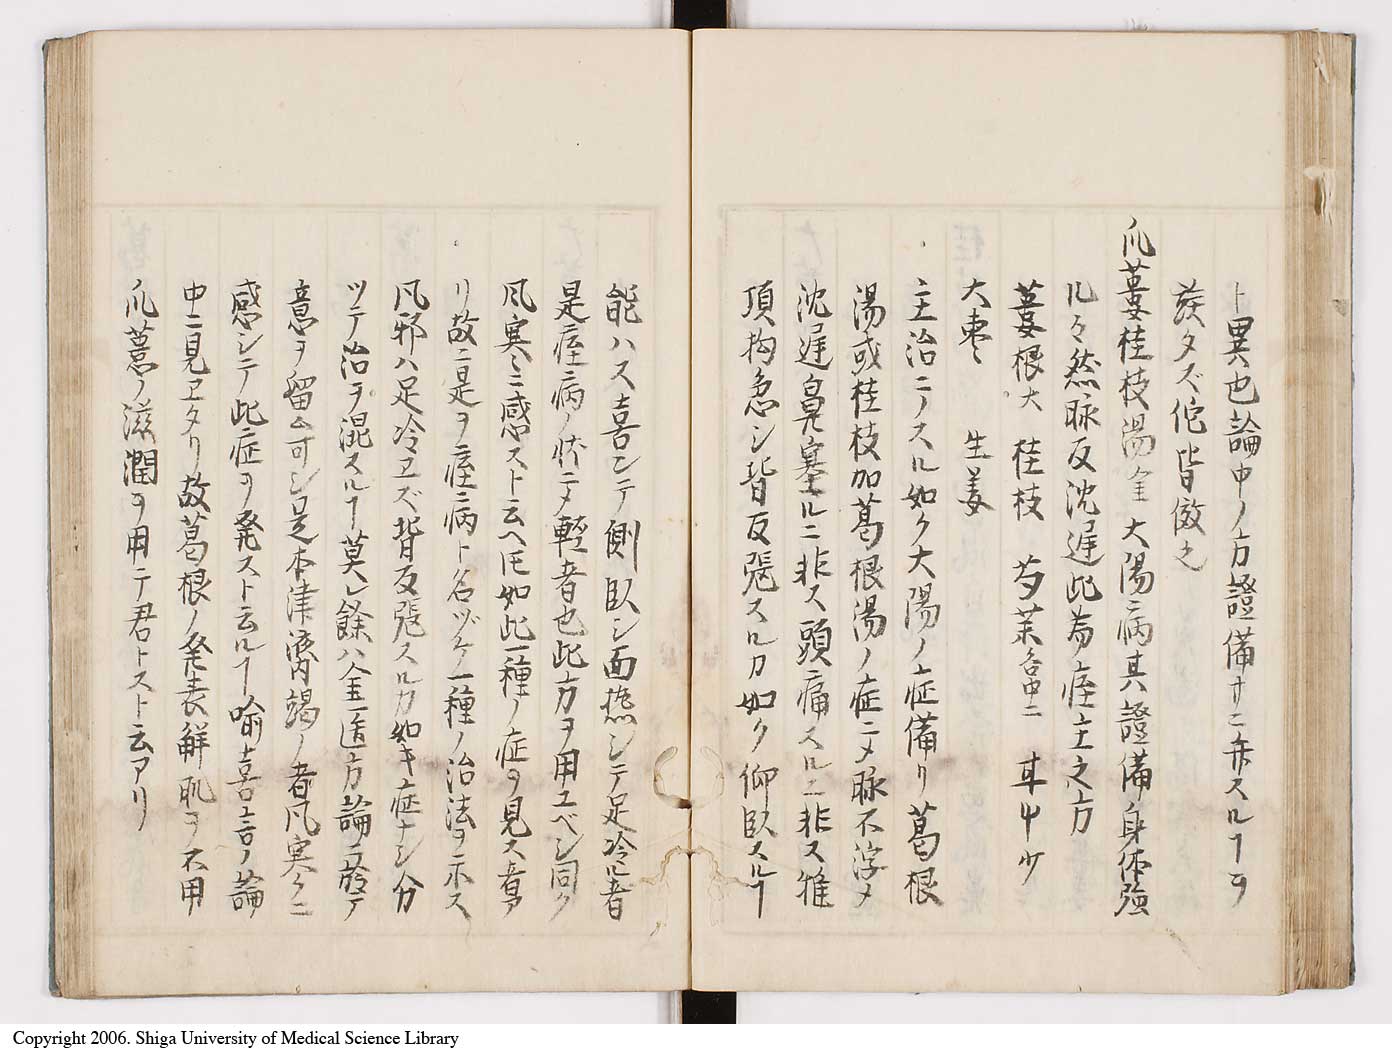 ト異也論中ノ方證備サニ示スルヿヲ
該タズ佗皆倣之
瓜蔞桂枝湯 金 大陽病其證備身体強
ル々然脉反沈遅此為痙主之方
蔞根大 桂枝 芍薬各中ニ 甘艸少
大棗 生姜
主治ニノスル如ク大陽ノ症備リ葛根
湯或桂枝加葛根湯ノ症ニメ脉不浮メ
沈遅鼻塞ルニ非ス頭痛スルニ非ス雅
頂拘急シ背反張スルカ如ク仰臥スルヿ
能ハス喜ンテ側臥シ面𤍠シテ足冷ル者
是痙病ノ状ニメ軽者也此方ヲ用ユベシ同ク
風寒ニ感スト云ヘ𪜈如此一種ノ症ヲ見ス者ア
リ故ニ是ヲ痙病ト名ヅケ一種ノ治法ヲ示ス
風邪ハ足冷ヱズ背反張スルカ如キ症ナシ分
ツテ治ヲ混スルヿ莫レ餘ハ金匱方論ニ於ア
意ヲ留ム可シ是本津液内竭ノ者風寒々ニ
感シテ此症ヲ発スト云ルヿ喻嘉言ノ論
中ニ見ヱタリ故葛根ノ発表解肌ヲ不用
瓜蔞ノ滋潤ヲ用テ君トスト云アリ
Copyright 2006. Shiga University of Medical Science Library